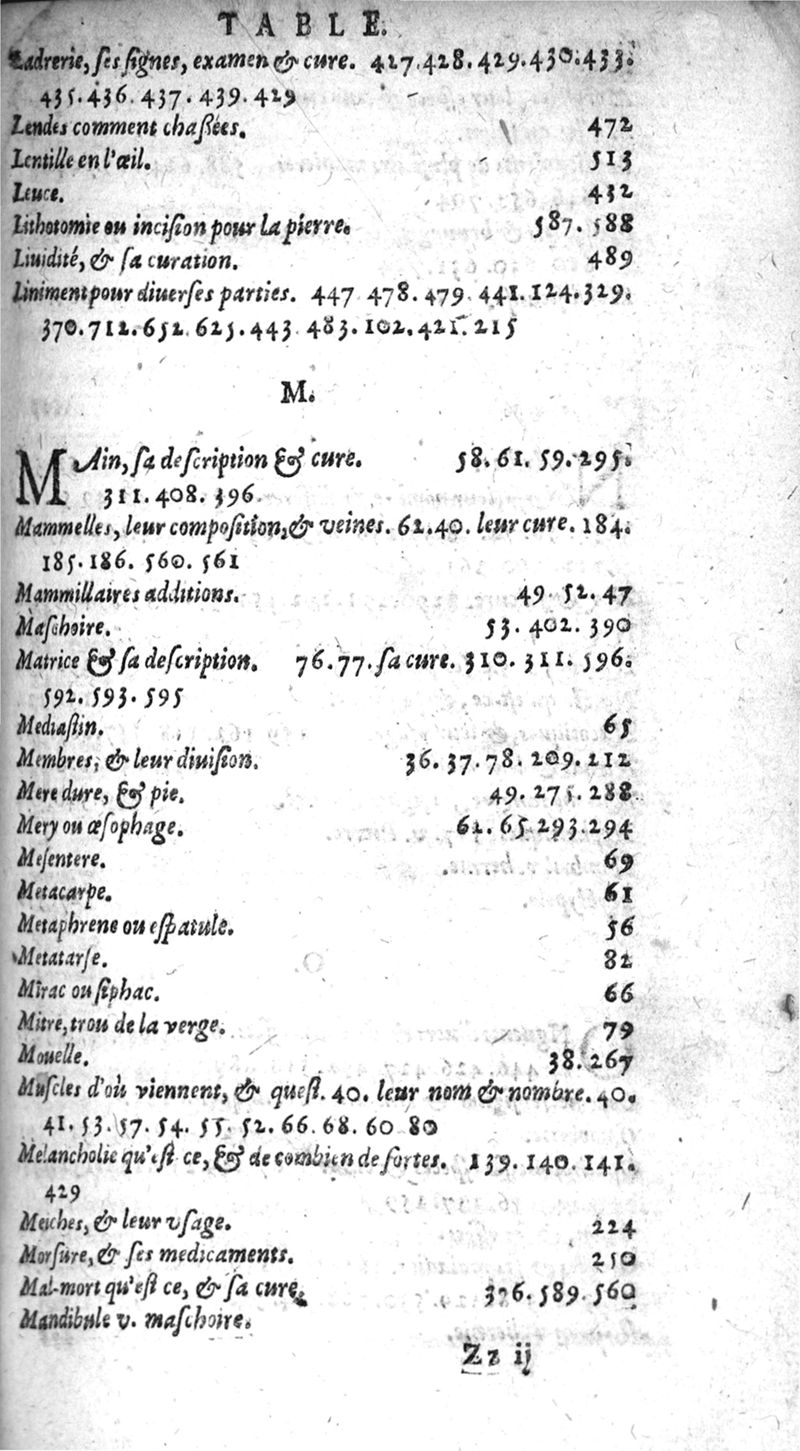 TABLE.
Ladrerie, ses signes, examen & cure. 427.428.429.430.433.
435.436.437.439.429
Lendes comment chaßées. 472
Lentille en l'œil. 513
Leuce. 432
Lithotomie ou incision pour la pierre. 587.588
Liuidité, & sa curation. 489
Liniment pour diuerses parties. 447 478.479.441.124.329.
370.712.652.625.443.483.102.421.215
M.
MAin, sa description & cure. 58.61.59.295.
311.408.396.
Mammelles, leur composition, & veines. 62.40. leur cure. 184.
185.186.560.561
Mammillaires additions. 49.52.47
Maschoire. 53.402.390
Matrice & sa description. 76.77. sa cure. 310.311.596.
592.593.595
Mediastin. 65
Membres, & leur diuision. 36.37.78.209.212
Mere dure, & pie. 49.275.288
Mery ou œsophage. 62.65.293.294
Mesentere. 69
Metacarpe. 61
Metaphrene ou espatule. 56
Metatarse. 82
Mirac ou siphac. 66
Mitre, trou de la verge. 79
Mouelle. 38.267
Muscles d'où viennent, & quest. 40. leur nom & nombre. 40.
41.53.57.54.55.52.66.68.60 80
Melancholie qu'est ce, & de combien de sortes. 139.140.141.
429
Meiches, & leur vsage. 224
Morsure, & ses medicaments. 250
Mal-mort qu'est ce, & sa cure. 376.589.560
Mandibule v. maschoire.
Zz ij